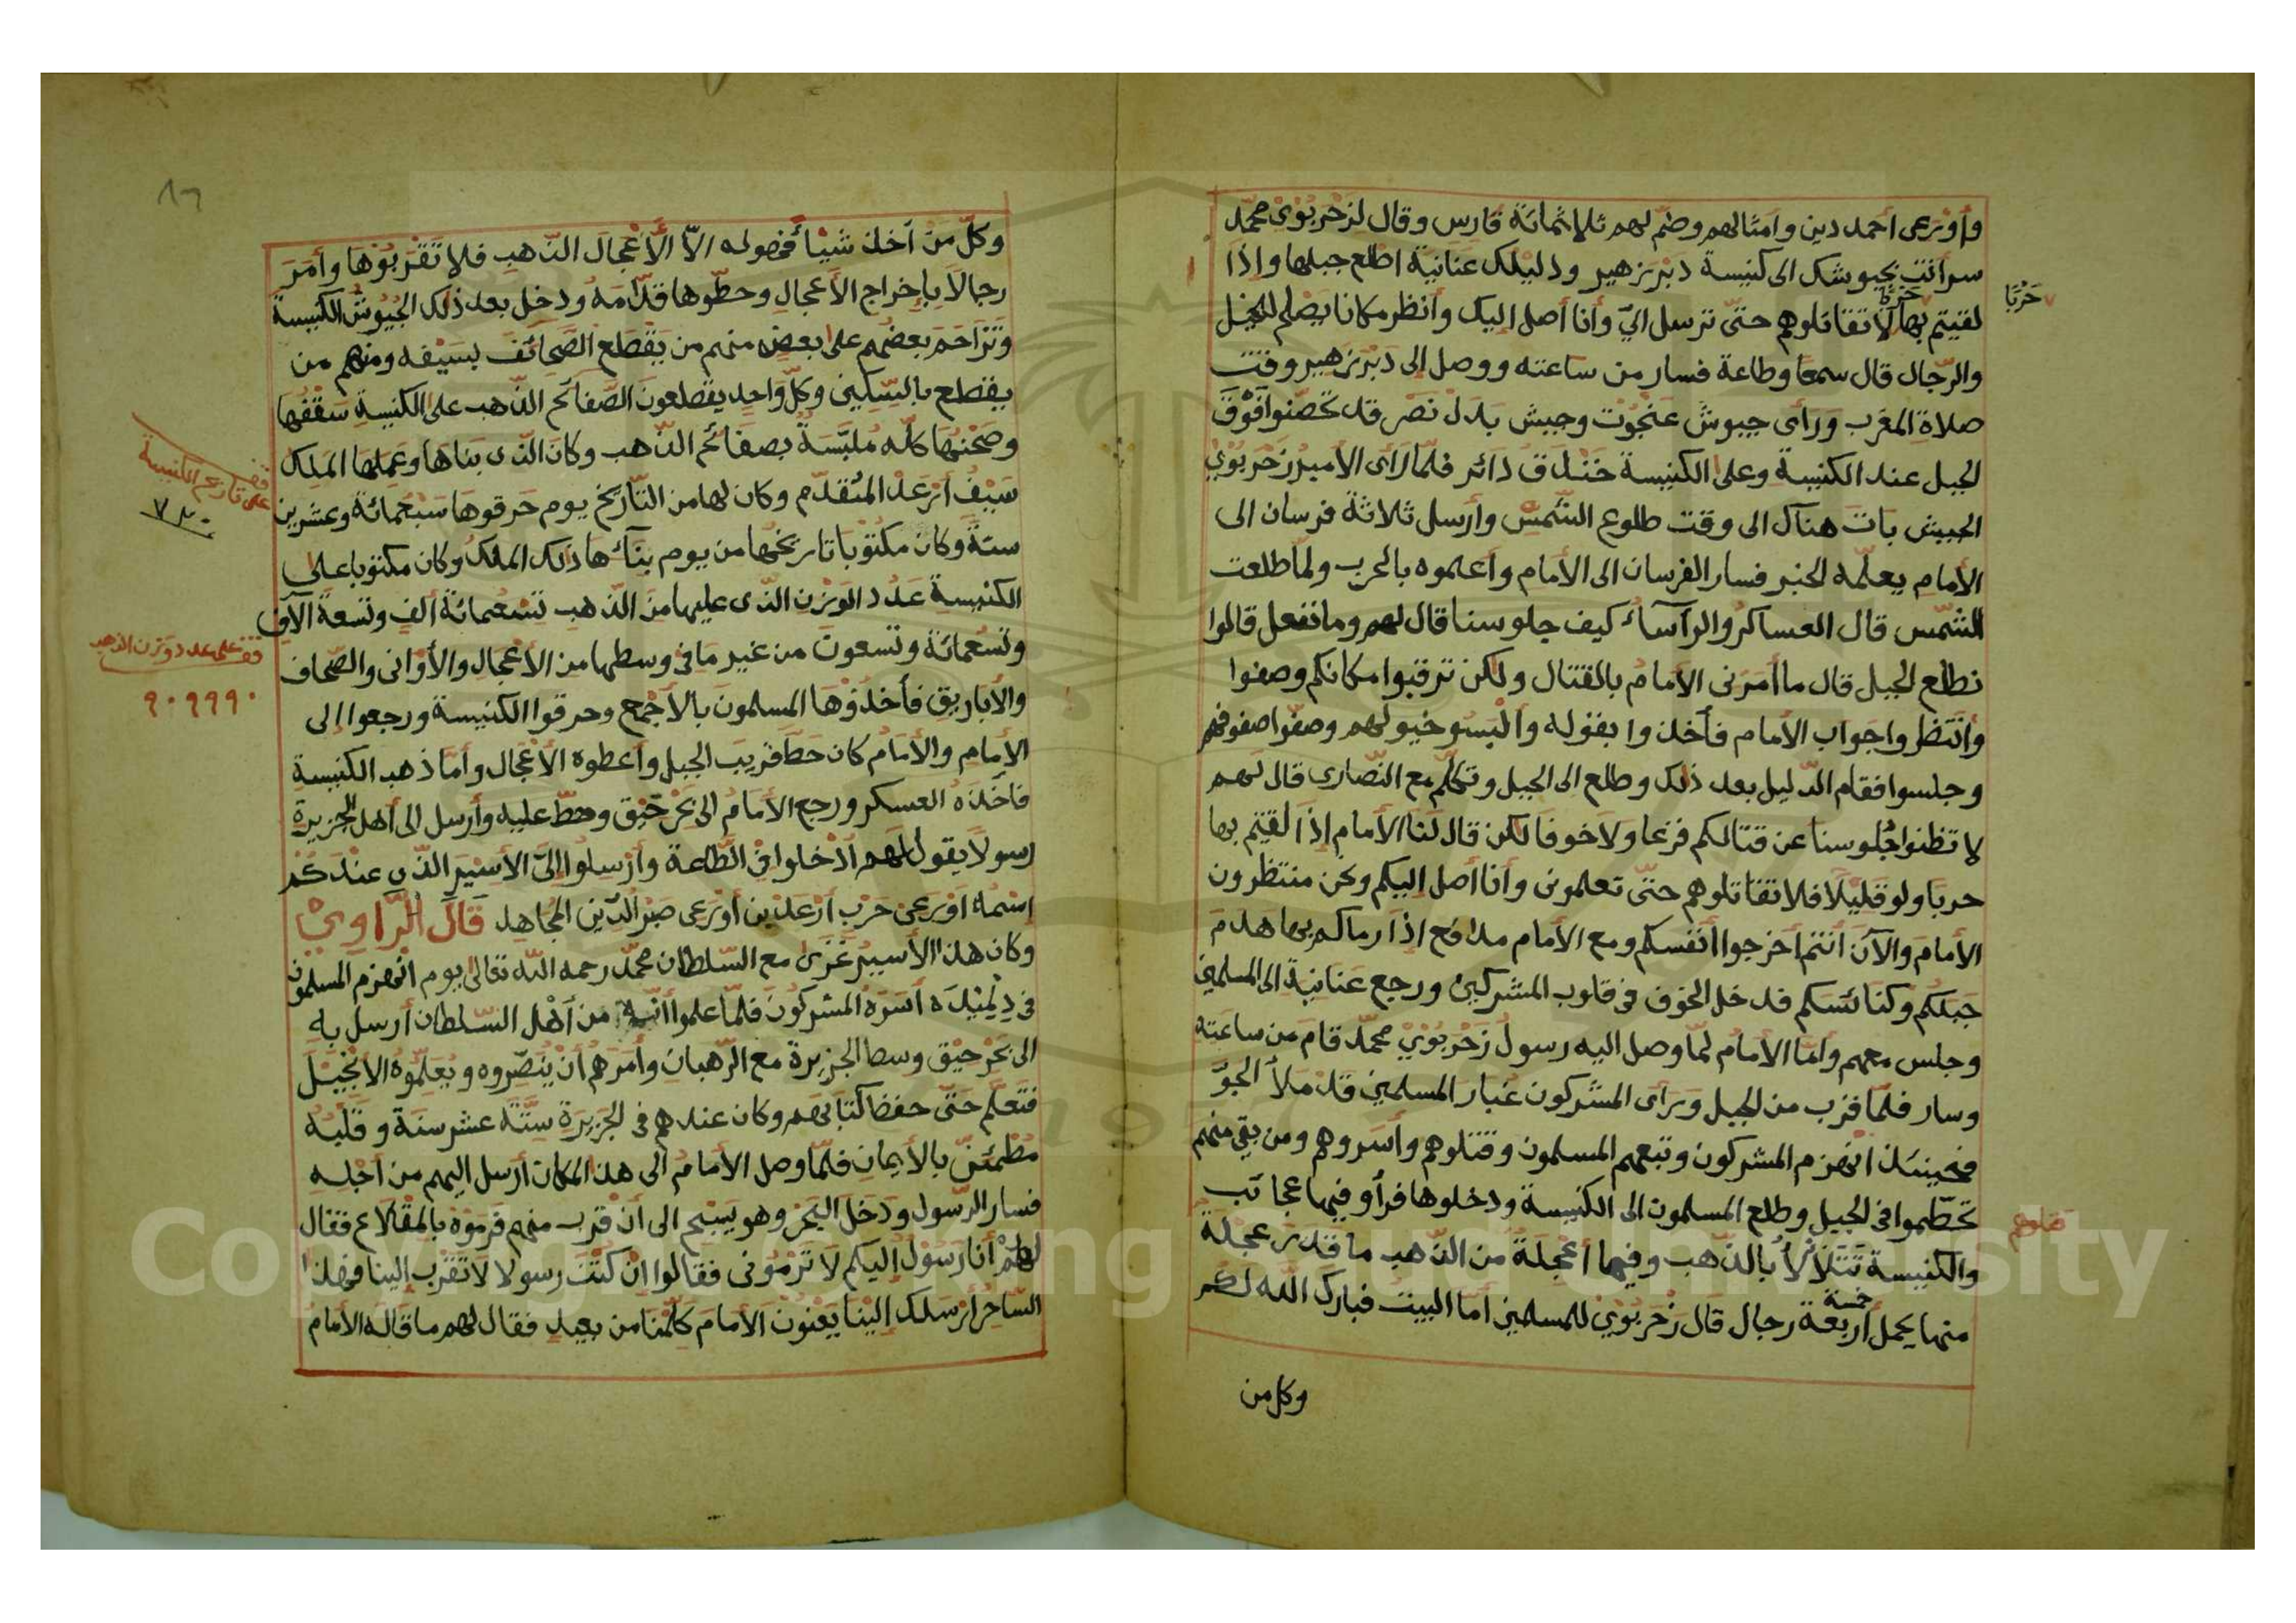 وأورعى أحمد دين وأمثالهم وضم لهم ثلاثمائة فارس وقال لزحربوى محمد
سر أنت بجيوشك الى كنيسة دبر زهير ودليلك عنانية اطلع جبلها واذا
لقيتم بها حربًا لا تقاتلوهم حتى ترسل الي وأنا أصل اليك وأنظر مكانا يصلح للخيل
حَرْبًا
والرجال قال سمعا وطاعة فسار من ساعته ووصل إلى دبر زهير وقت
صلاة المغرب ورأى جيوش عنجوت وجيش بدل نصر قد تحصنوا فوق
الجبل عند الكنيسة وعلى الكنيسة خندق دائر فلما رأى الأمير زحربوي
الجيش بات هناك الى وقت طلوع الشمس وأرسل ثلاثة فرسان الى
الأمام يعلمه الخبر فسار الفرسان الى الأمام وأعلموه بالحرب ولما طلعت
الشمس قال العساكر والرآساء كيف جلوسنا قال لهم وما نفعل قالوا
نطلع الجبل قال ما أمرنى الأمام بالقتال ولكن ترقبوا مكانكم وصفوا
وانتظروا جواب الأمام فأخذوا بقوله وألبسو خيولهم وصفوا صفوفهم
وجلسوا فقام الدليل بعد ذلك وطلع الى الجبل وتكلم مع النصارى قال لهم
لا تظنوا جلوسنا عن قتالكم فزعا ولا خوفا لكن قال لنا الأمام إذا لقيتم بها
حربا ولو قليلا فلا تقاتلوهم حتى تعلمونى وأنا أصل إليكم ونحن منتظرون
الأمام والآن أنتم أخرجوا أنفسكم ومع الأمام مدافع اذا رماكم بها هدم
جبلكم وكنائسكم فدخل الخوف فى قلوب المشركين ورجع عنانية الى المسلمين
وجلس معهم وأما الأمام لما وصل اليه رسول زحربوي محمد قام من ساعته
وسار فلما قرب من الجبل ورأى المشركون غبار المسلمين قد ملأ الجو
فحينئذ انهزم المشركون وتبعهم المسلمون وقتلوهم وأسروهم ومن بقى منهم
تحطموا فى الجبل وطلع المسلمون الى الكنيسة ودخلوها فرأو فيها عجائب
والكنيسة تتلألأ بالذهب وفيها أعجلة من الذهب ما قدر عجلة
منها يحمل أربعة خمسة رجال قال زحربوي للمسلمين أما البيت فبارك الله لكم
وكل من
٨٦
وكل من أخذ شيأ فهو له الا الأعجال الذهب فلا تقربوها وأمر
رجالا بإخراج الأعجال وحطوها قدامه ودخل بعد ذلك الجيوش الكنيسة
وتزاحم بعضهم على بعض منهم من يقطع الصحائف بسيفه ومنهم من
يقطع بالسكين وكل واحد يقطعون الصفائح الذهب على الكنيسة سقفها
وصحنها كله ملبسة بصفائح الذهب وكان الذى بناها وعملها الملك
سيف أرعد المتقدم وكان لها من التاريخ يوم حرقوها سبعمائة وعشرين
قف على تاريخ الكنيسة
٧٢٠
سنة وكان مكتوبا تاريخها من يوم بناءها ذلك الملك وكان مكتوبا على
الكنيسة عدد الوزن الذى عليها من الذهب تسعمائة ألف وتسعة آلاف
وتسعمائة وتسعون من غير ما فى وسطها من الأعجال والأوانى والصحاف
قف على عدد وزن الذهب
٩٠٩٩٩٠
والأباريق فأخذوها المسلمون بالأجمع وحرقوا الكنيسة ورجعوا إلى
الأمام والأمام كان حط قريب الجبل وأعطوه الأعجال وأما ذهب الكنيسة
فأخذه العسكر ورجع الأمام الى بحر حيق وحط عليه وأرسل الى أهل الجزيرة
رسولا يقول لهم أدخلوا فى الطاعة وأرسلوا إلى الأسير الذى عندكم
اسمه أورعى حرب أرعد بن أورعى صبر الدين المجاهد قال الراوي
وكان هذا الأسير غزى مع السلطان محمد رحمه الله تعالى يوم انهزم المسلمون
فى دلميده أسره المشركون فلما علموا أنه من أهل السلطان أرسل به
الى بحر حيق وسط الجزيرة مع الرهبان وأمرهم أن ينصروه ويعلموه الانجيل
فتعلم حتى حفظ كتابهم وكان عندهم فى الجزيرة ستة عشر سنة وقلبه
مطمئن بالأيمان فلما وصل الأمام الى هذا المكان أرسل اليهم من أجله
فسار الرسول ودخل البحر وهو يسبح الى أن قرب منهم فرموه بالمقلاع فقال
لهم أنا رسول إليكم لا ترمونى فقالوا ان كنت رسولا لا تقرب إلينا فهذا
الساحر أرسلك إلينا يعنون الأمام كلمنا من بعيد فقال لهم ما قاله الأمام
Copyright © King Saud University